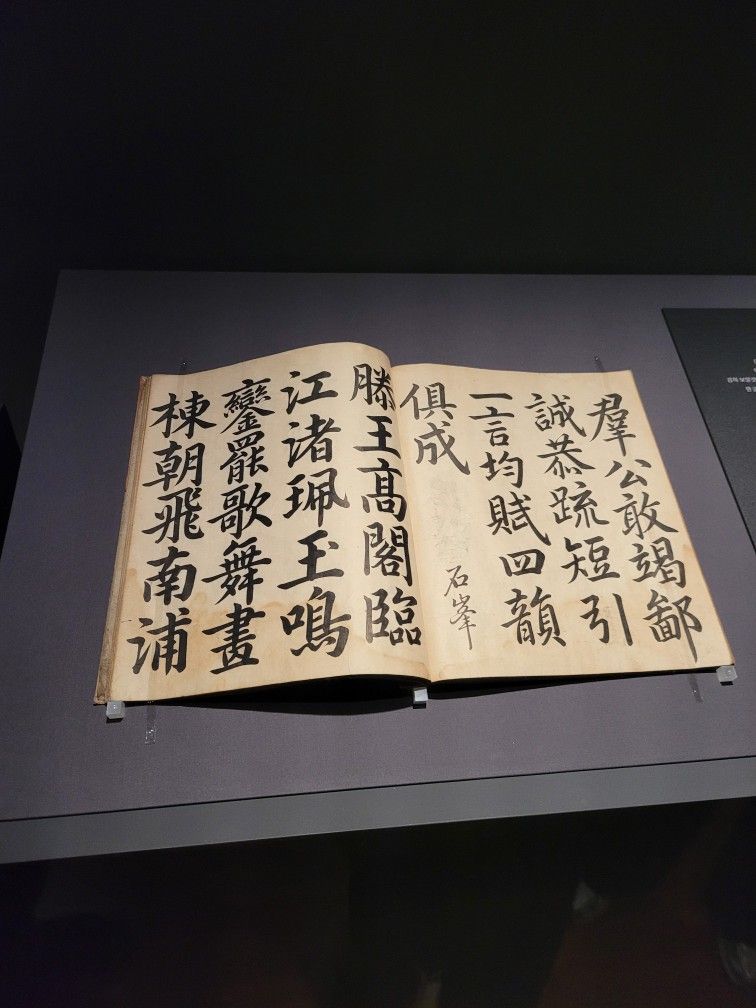 羣公敢竭鄙
誠恭疏短引
一言均賦四韻
俱成
石峯
滕王高閣臨
江渚珮玉鳴
鑾罷歌舞畫
棟朝飛南浦